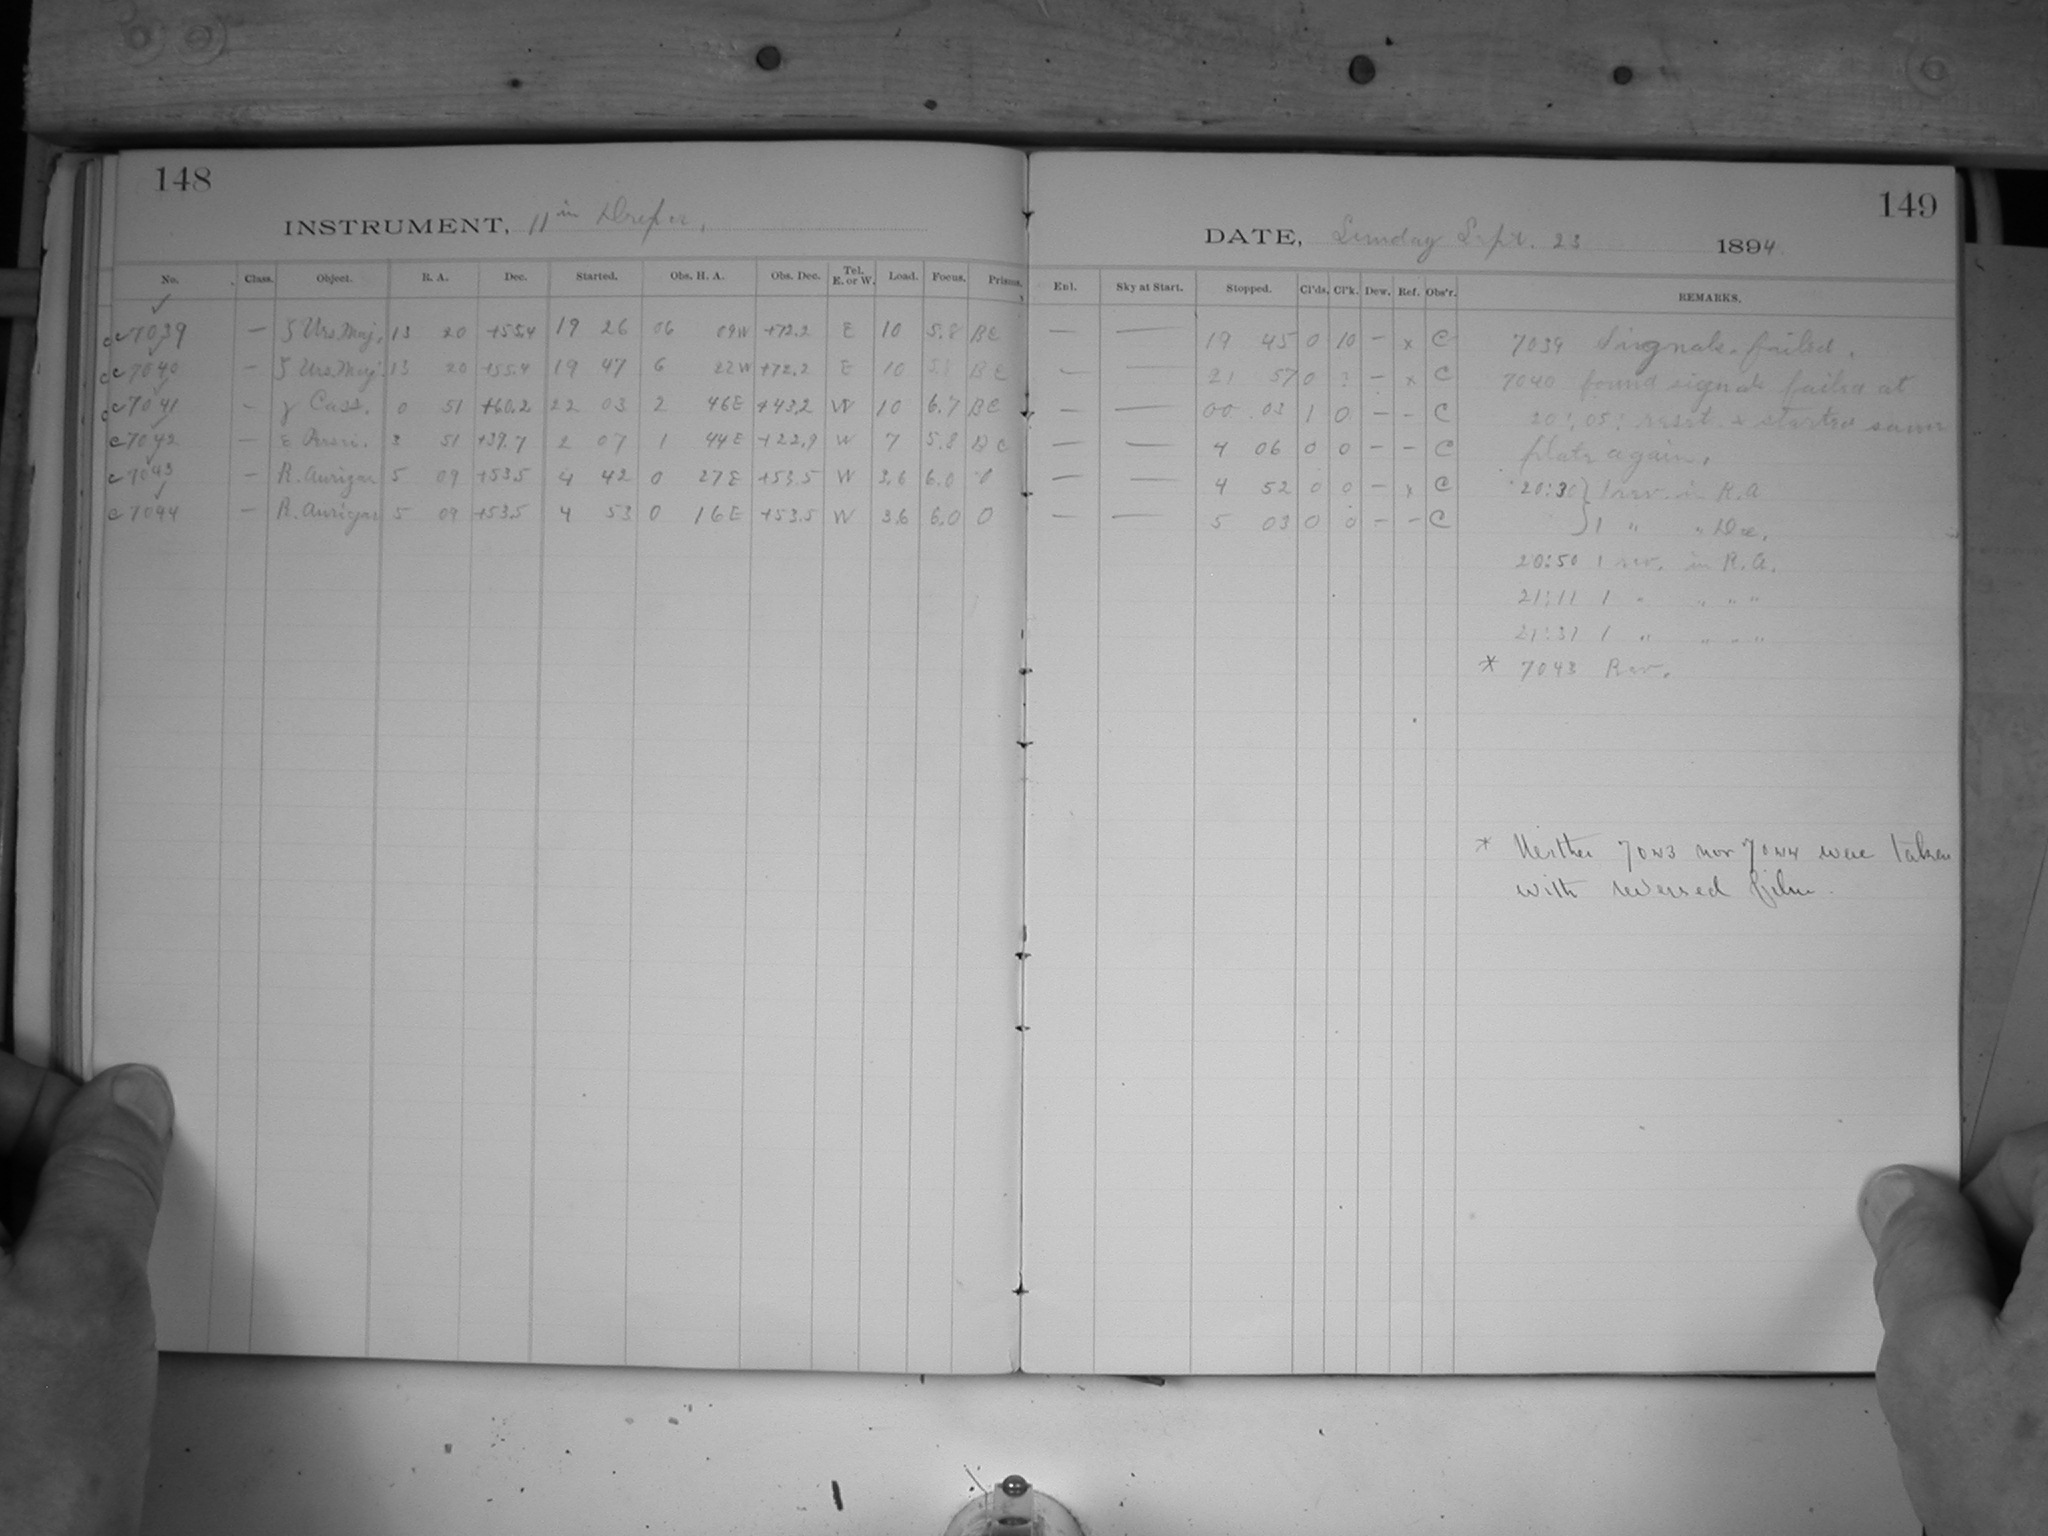 148
INSTRUMENT, 11 in Draper,
No. Class. Object. R. A. Dec. Started. Obs. H. A. Obs. Dec. Tel. E. or W. Load. Focus. Prisms.
c 7039 — ζ Urs Maj. 13 20 +55.4 19 26 06 09W +72.2 E 10 5.8 BC
c 7040 — ζ Urs Maj. 13 20 +55.4 19 47 6 22W +72.2 E 10 5.8 BC
c 7041 - γ Cass. 0 51 +60.2 22 03 2 46E +43.2 W 10 6.7 BC
c 7042 — ε Persei. 3 51 +39.7 2 07 1 44E +22.9 W 7 5.8 BC
c 7043 — R. Aurigae 5 09 +53.5 4 42 0 27E +53.5 W 3.6 6.0 0
c 7044 — R. Aurigae 5 09 +53.5 4 53 0 16E +53.5 W 3.6 6.0 0
149
DATE, Sunday Sept. 23 1894
Enl. Sky at Start. Stopped. Cl'ds. Cl'k. Dew. Ref. Obs'r. REMARKS.
— — 19 45 0 10 — x C 7039 Signals failed.
— — 21 57 0 ? — x C 7040 found signals failed at
— — 00 03 1 0 — - C 20:05; reset & started same
— — 4 06 0 0 — - C plate again.
— — 4 52 0 0 — x C 20:30 } 1 rev. in R.A
— — 5 03 0 0 — - C } 1 " " Dec.
20:50 1 rev. in R.A.
21:11 1 " " " "
21:31 1 " " " "
* 7043 Rev.
* Neither 7043 nor 7044 were taken
with reversed film.